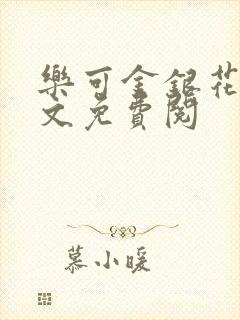 樂可金銀花
文免費閱
慕小暖